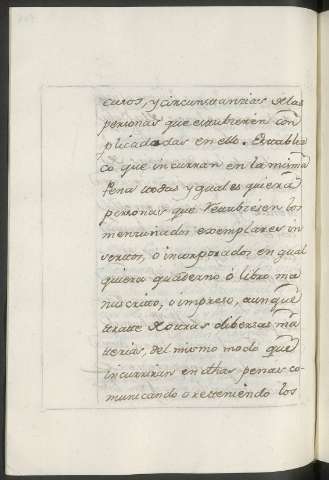 casos, y circunstanzias de las
personas que estubieren com
plicadadas en ello. Establez
co que incurran en la misma
Pena todas y quales quiera
personas que retubiesen los
menzunados exemplares in
sertos, o incorporados en qual
quiera quaderno o libro ma
nuscrito, o impreso, aunque
tratte de otras dibersas ma
tterias, del mismo modo que
incurriran en dhas penas co-
municando o retteniendo los